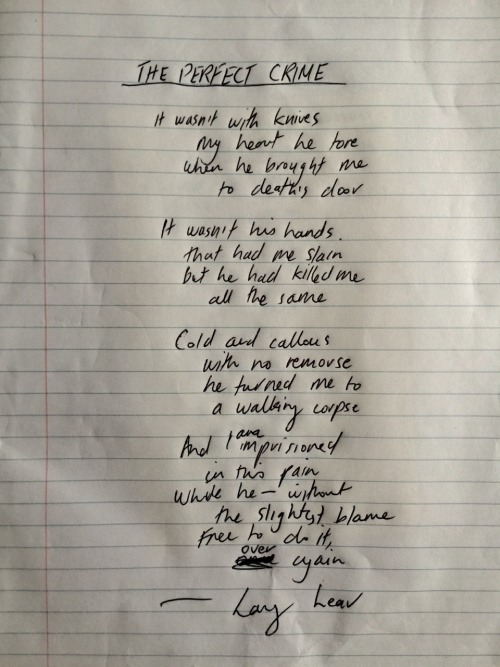 THE PERFECT CRIME
It wasn't with knives
my heart he tore
when he brought me
to death's door
It wasn't his hands.
that had me slain
but he had killed me
all the same
Cold and callous
with no remorse
he turned me to
a walking corpse
And I am imprisioned
in this pain
While he — without
the slightest blame
Free to do it,
over again
— Lang Leav